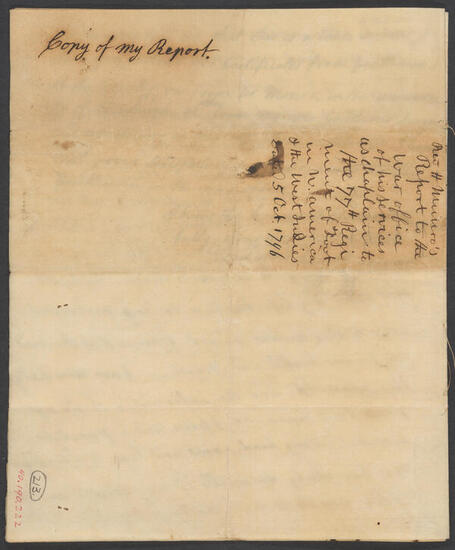 Copy of my Report.
Revd H Munro's
Report to the
War office
of his services
as chaplain to
the 77th Regi
ment of Foot
in N. America
& the West Indies
5 Oct 1796
213.
40.190.222